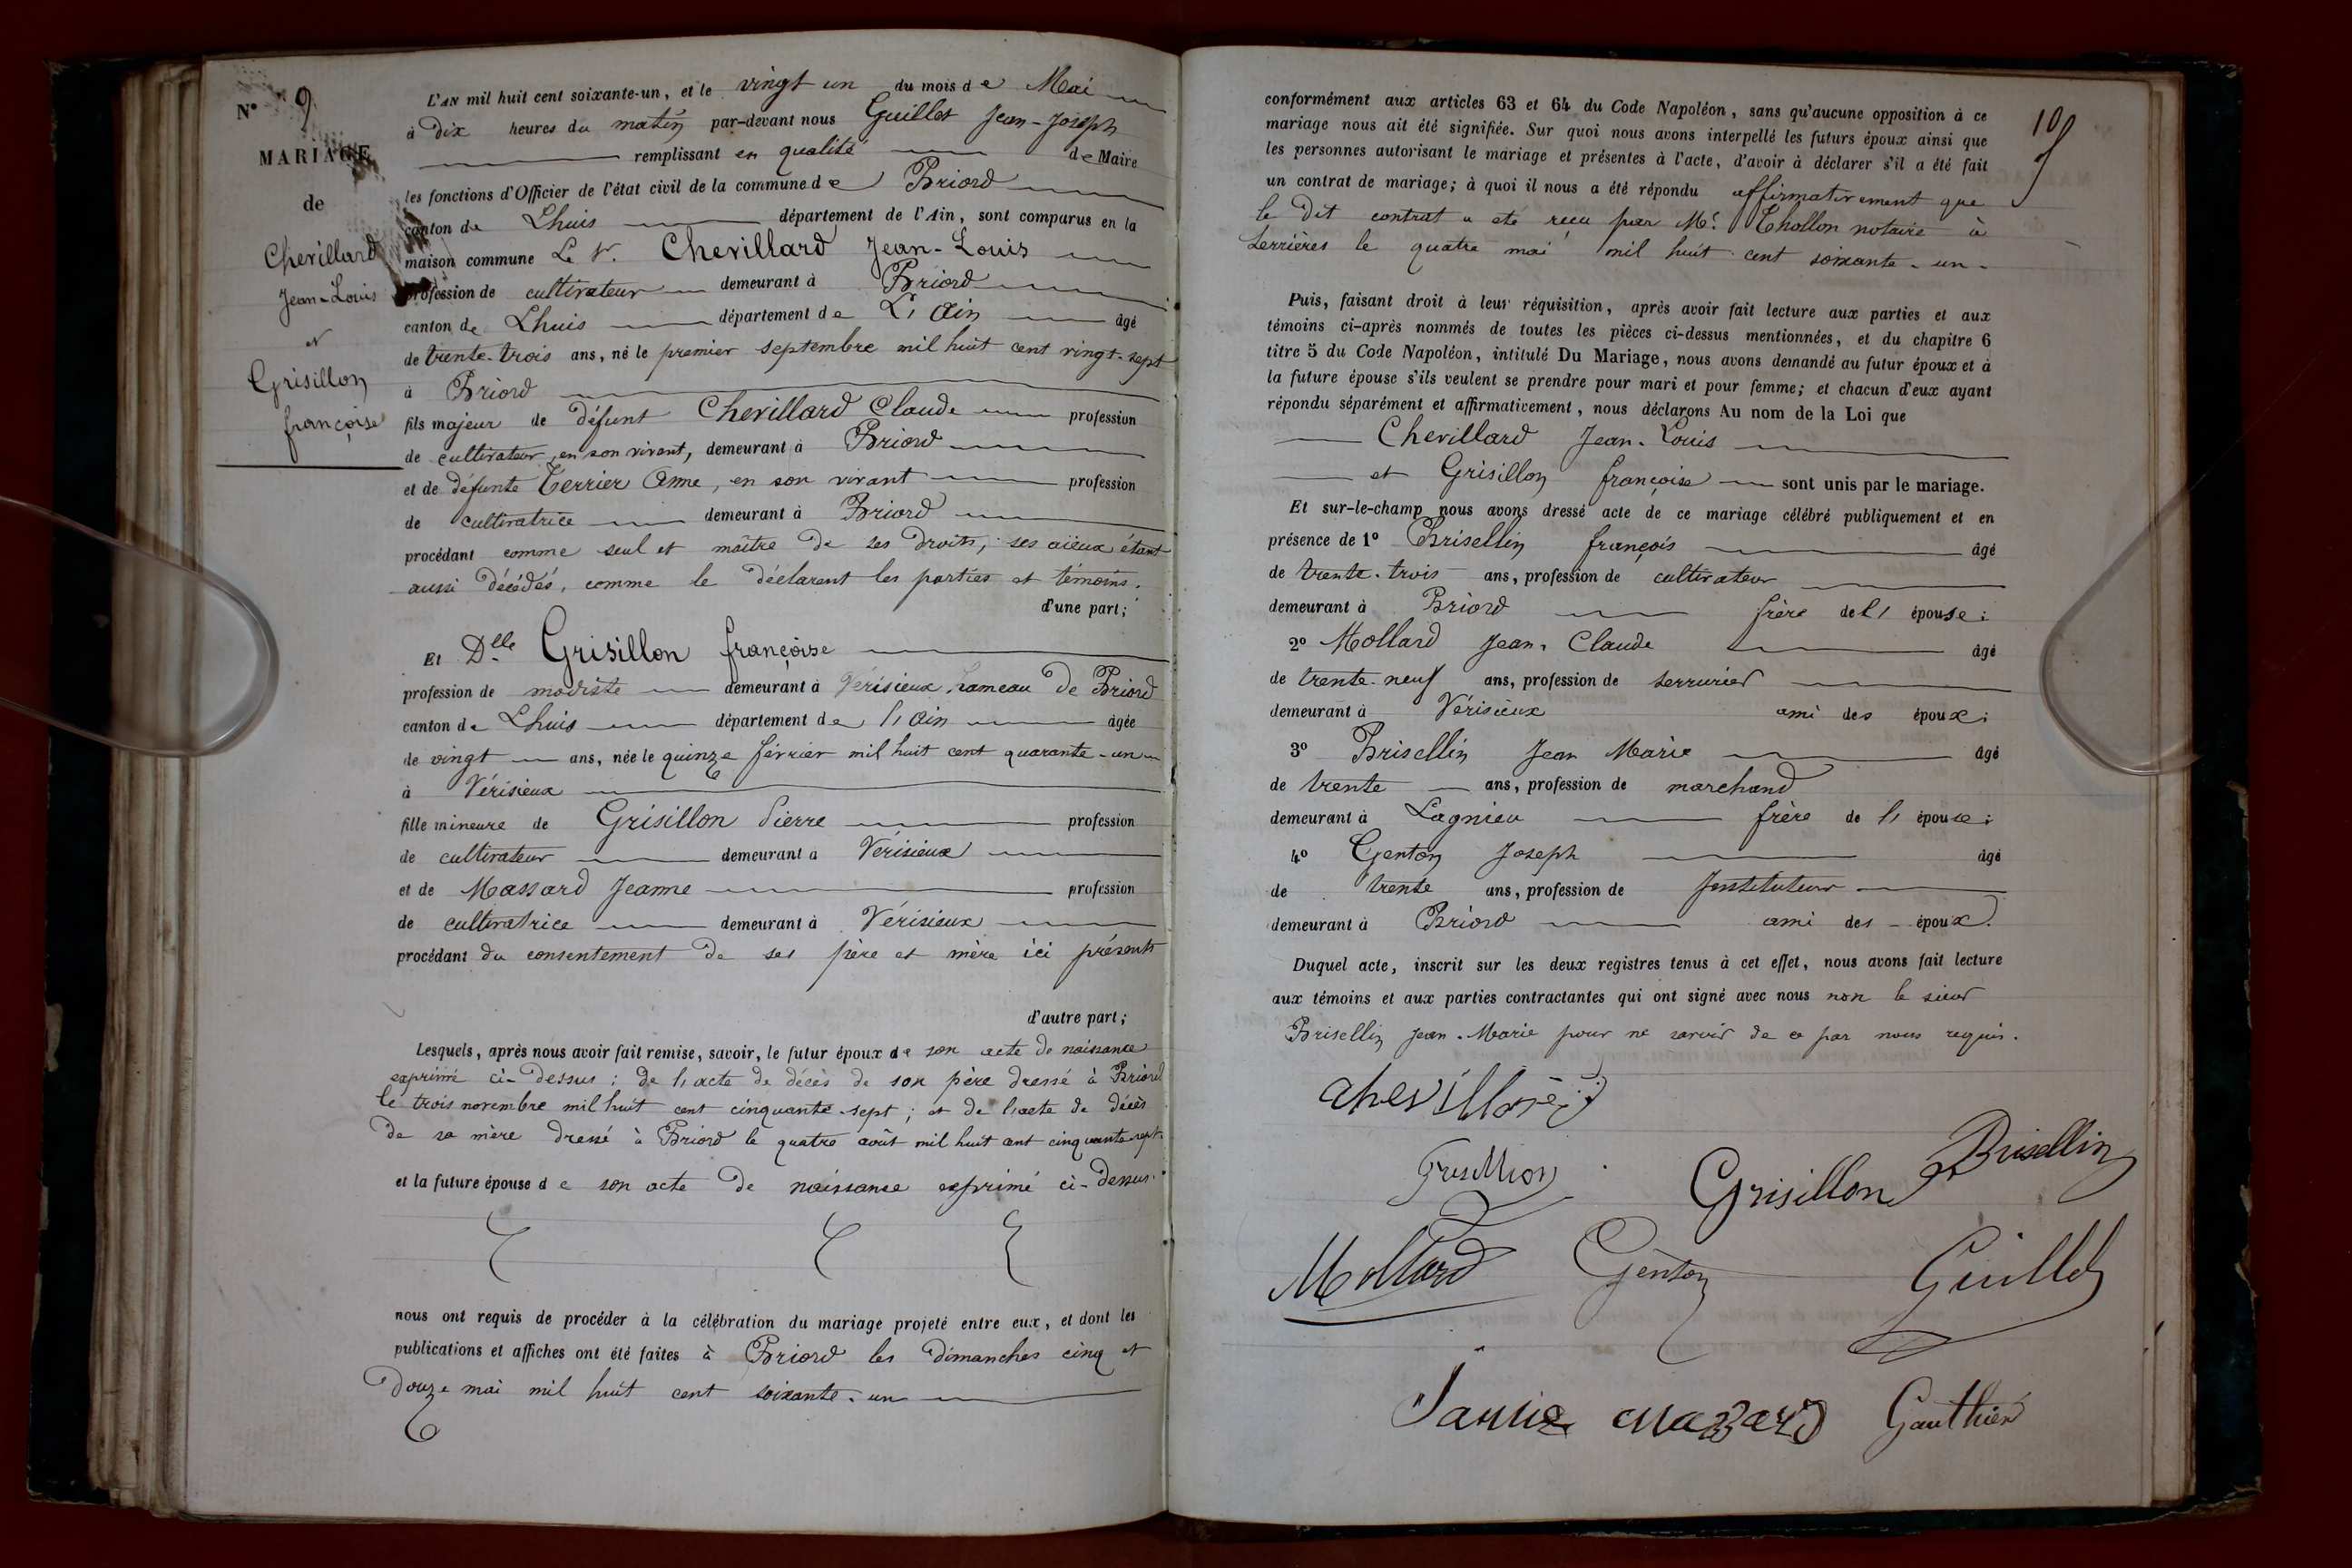 N° 9
MARIAGE
de
Chevillard
Jean-Louis
et
Grisillon
françoise
L'AN mil huit cent soixante-un, et le vingt un du mois de Mai
à dix heures du matin par-devant nous Guillet Jean-Joseph
remplissant en qualité de Maire
les fonctions d'Officier de l'état civil de la commune de Briord
canton de Lhuis département de l'Ain, sont comparus en la
maison commune Le Sr. Chevillard Jean-Louis
profession de cultivateur demeurant à Briord
canton de Lhuis département de L'Ain âgé
de trente-trois ans, né le premier septembre mil huit cent vingt-sept
à Briord
fils majeur de défunt Chevillard Claude profession
de cultivateur, en son vivant, demeurant à Briord
et de défunte Terrier Anne, en son vivant profession
de cultivatrice demeurant à Briord
procédant comme seul et maître de ses droits, ses aïeux étant
aussi décédés, comme le déclarent les parties et témoins.
d'une part;
Et Delle Grisillon françoise
profession de modiste demeurant à Vérisieux hameau de Briord
canton de Lhuis département de l'Ain âgée
de vingt ans, née le quinze février mil huit cent quarante-un
à Vérisieux
fille mineure de Grisillon Pierre profession
de cultivateur demeurant à Vérisieux
et de Massard Jeanne profession
de cultivatrice demeurant à Vérisieux
procédant du consentement de ses père et mère ici présents
d'autre part;
Lesquels, après nous avoir fait remise, savoir, le futur époux de son acte de naissance
exprimé ci-dessus; de l'acte de décès de son père dressé à Briord
le trois novembre mil huit cent cinquante-sept; et de l'acte de décès
de sa mère dressé à Briord le quatre août mil huit cent cinquante-sept.
et la future épouse de son acte de naissance exprimé ci-dessus.
nous ont requis de procéder à la célébration du mariage projeté entre eux, et dont les
publications et affiches ont été faites à Briord les dimanches cinq et
douze mai mil huit cent soixante-un
10
conformément aux articles 63 et 64 du Code Napoléon, sans qu'aucune opposition à ce
mariage nous ait été signifiée. Sur quoi nous avons interpellé les futurs époux ainsi que
les personnes autorisant le mariage et présentes à l'acte, d'avoir à déclarer s'il a été fait
un contrat de mariage; à quoi il nous a été répondu affirmativement que
le dit contrat a été reçu par Me. Thollon notaire à
Serrières le quatre mai mil huit cent soixante-un.
Puis, faisant droit à leur réquisition, après avoir fait lecture aux parties et aux
témoins ci-après nommés de toutes les pièces ci-dessus mentionnées, et du chapitre 6
titre 5 du Code Napoléon, intitulé Du Mariage, nous avons demandé au futur époux et à
la future épouse s'ils veulent se prendre pour mari et pour femme; et chacun d'eux ayant
répondu séparément et affirmativement, nous déclarons Au nom de la Loi que
Chevillard Jean-Louis
et Grisillon françoise sont unis par le mariage.
Et sur-le-champ nous avons dressé acte de ce mariage célébré publiquement et en
présence de 1° Brisellin françois âgé
de trente-trois ans, profession de cultivateur
demeurant à Briord frère de l'épouse;
2° Mollard Jean-Claude âgé
de trente-neuf ans, profession de serrurier
demeurant à Vérisieux ami des époux;
3° Brisellin Jean Marie âgé
de trente ans, profession de marchand
demeurant à Lagnieu frère de l'épouse;
4° Genton Joseph âgé
de trente ans, profession de Instituteur
demeurant à Briord ami des époux.
Duquel acte, inscrit sur les deux registres tenus à cet effet, nous avons fait lecture
aux témoins et aux parties contractantes qui ont signé avec nous non le sieur
Brisellin Jean-Marie pour ne savoir de ce par nous requis.
chevillard
Grisillon
Grisillon
Brisellin
Mollard
Genton
Guillet
Janne massard
Gauthier